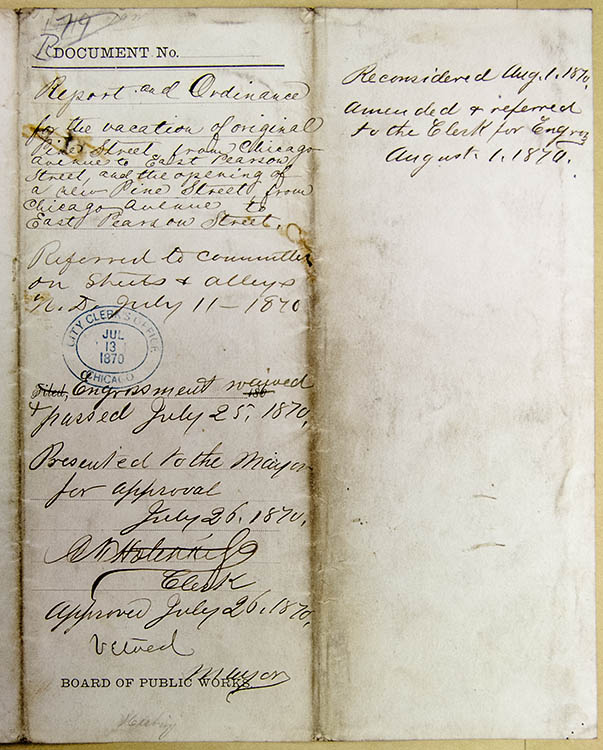 179
R
DOCUMENT No.
Report and Ordinance
for the vacation of original
Pine Street, from Chicago
avenue to East Pearson
Street, and the opening of
a new Pine Street from
Chicago Avenue to
East Pearson Street.
Referred to committee
on Streets & alleys
N. D. July 11 - 1870
CITY CLERK'S OFFICE
JUL
13
1870
CHICAGO
Filed, Engrossment waived 186
& passed July 25, 1870,
Presented to the Mayor
for approval
July 26, 1870,
Clerk
Approved July 26, 1870,
Vetoed
Mayor
BOARD OF PUBLIC WORKS
Reconsidered Aug. 1, 1870,
amended & referred
to the Clerk for Engros
August 1, 1870.